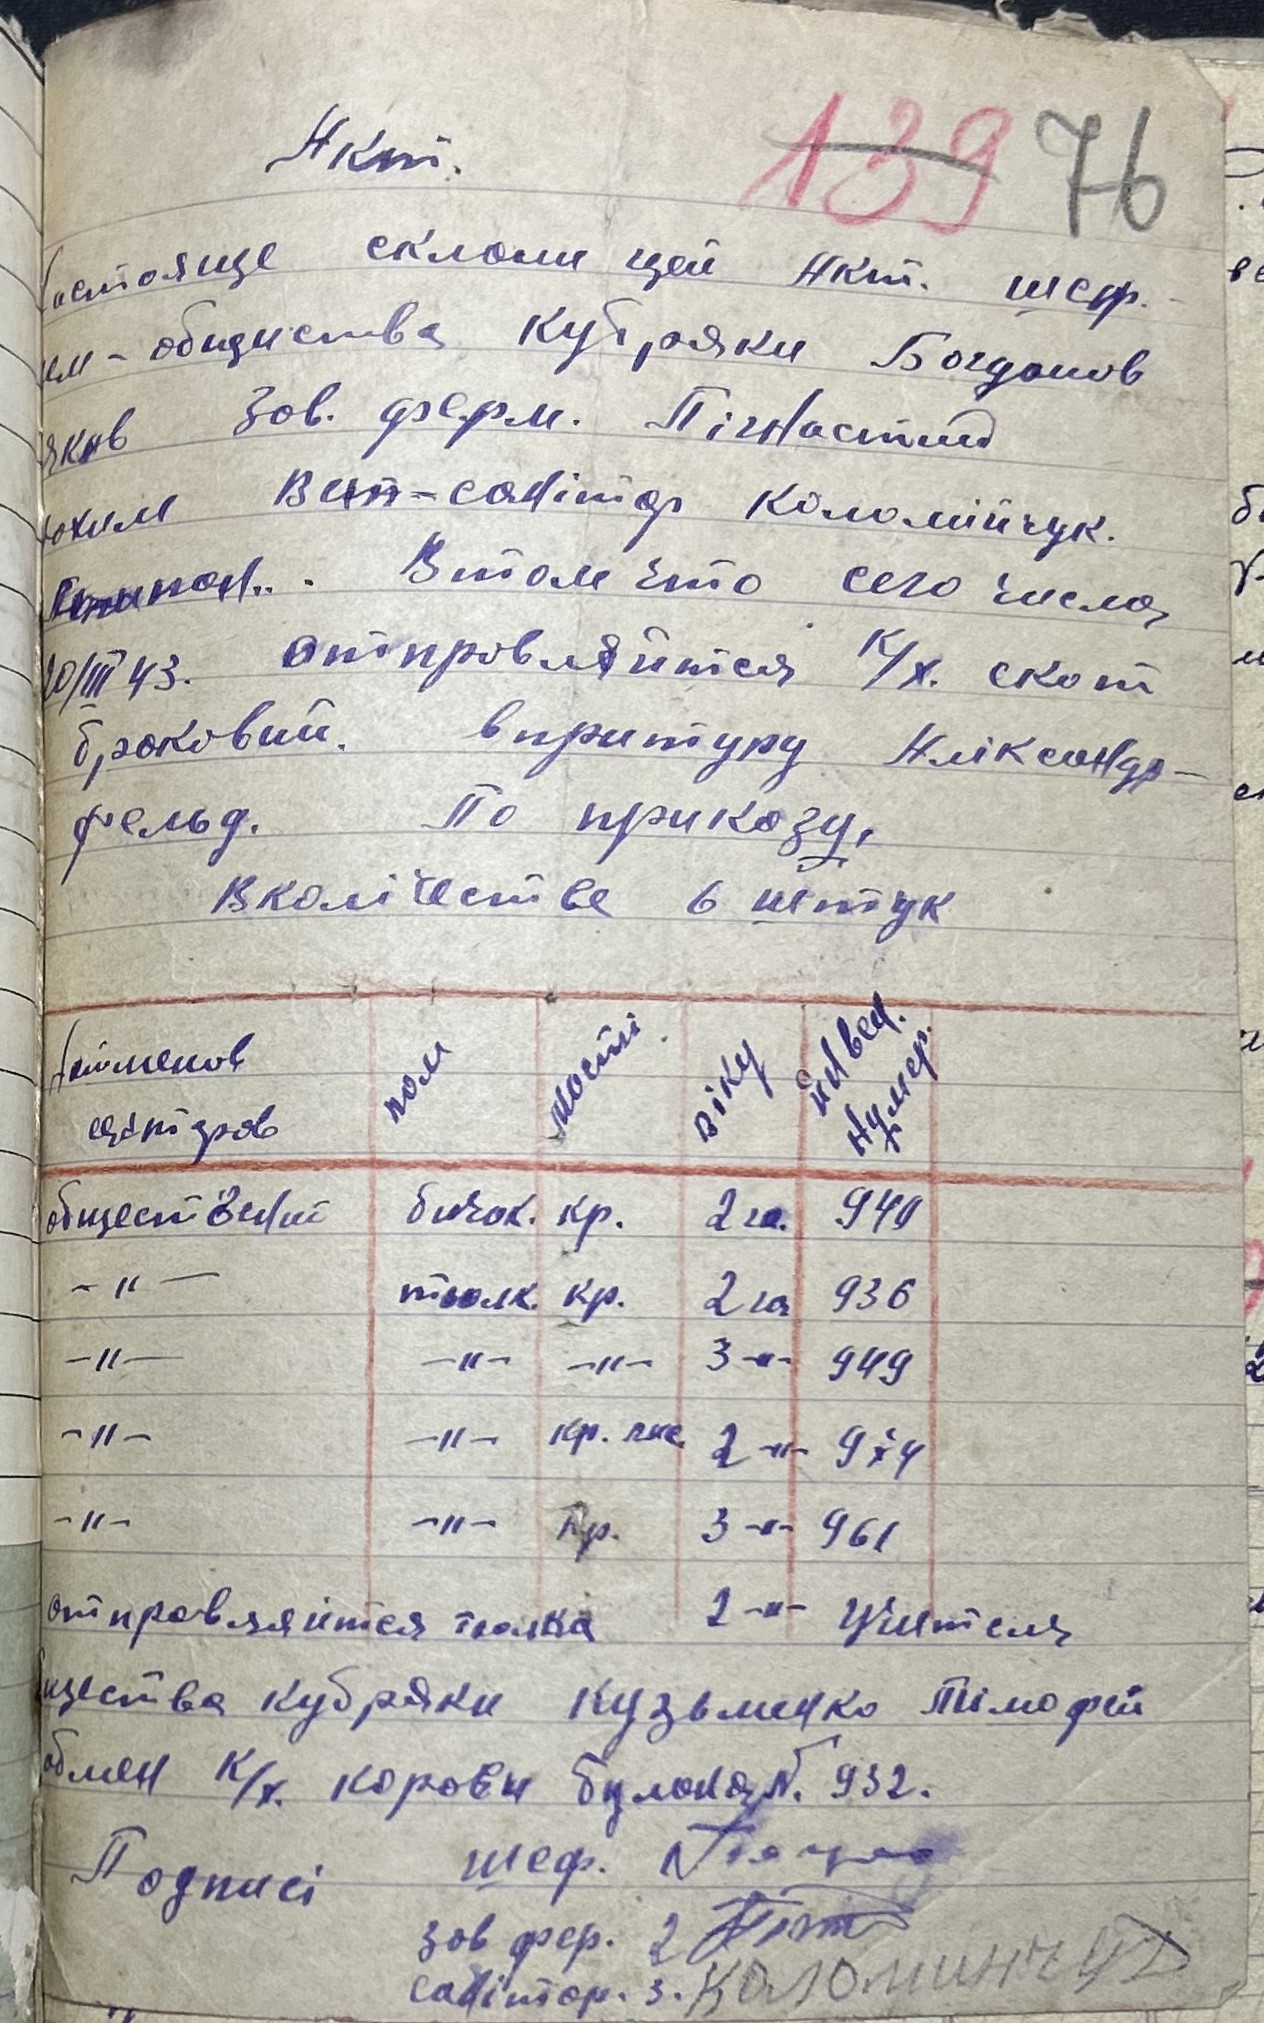 139 76
Акт.
Настояще склали цей Акт. шеф.
ем-общиства Кубряки Богданов
Яков Зав. ферм. Пігнастий
Юхим Вет-санітар Коломійчук.
В том что сего числа
20/III 43. отправляйтся К/х. скот
браковий. в притуру Аліксандр-
фельд. По приказу,
В колічестве 6 штук
Наіменов пол мості віку інвен.
нумер.
обществений бичок. кр. 2 га. 940
-"- тюлк. кр. 2 га 936
-"- -"- -"- 3 -"- 949
-"- -"- кр. 2 -"- 974
-"- -"- кр. 3 -"- 961
отправляйтся тюлка 2 -"- Учителя
общества Кубряки Кузьменко Тімофій
обмен К/х. корови була на N. 932.
Подписі шеф.
зав фер. 2
санітор. 3. Коломийчук